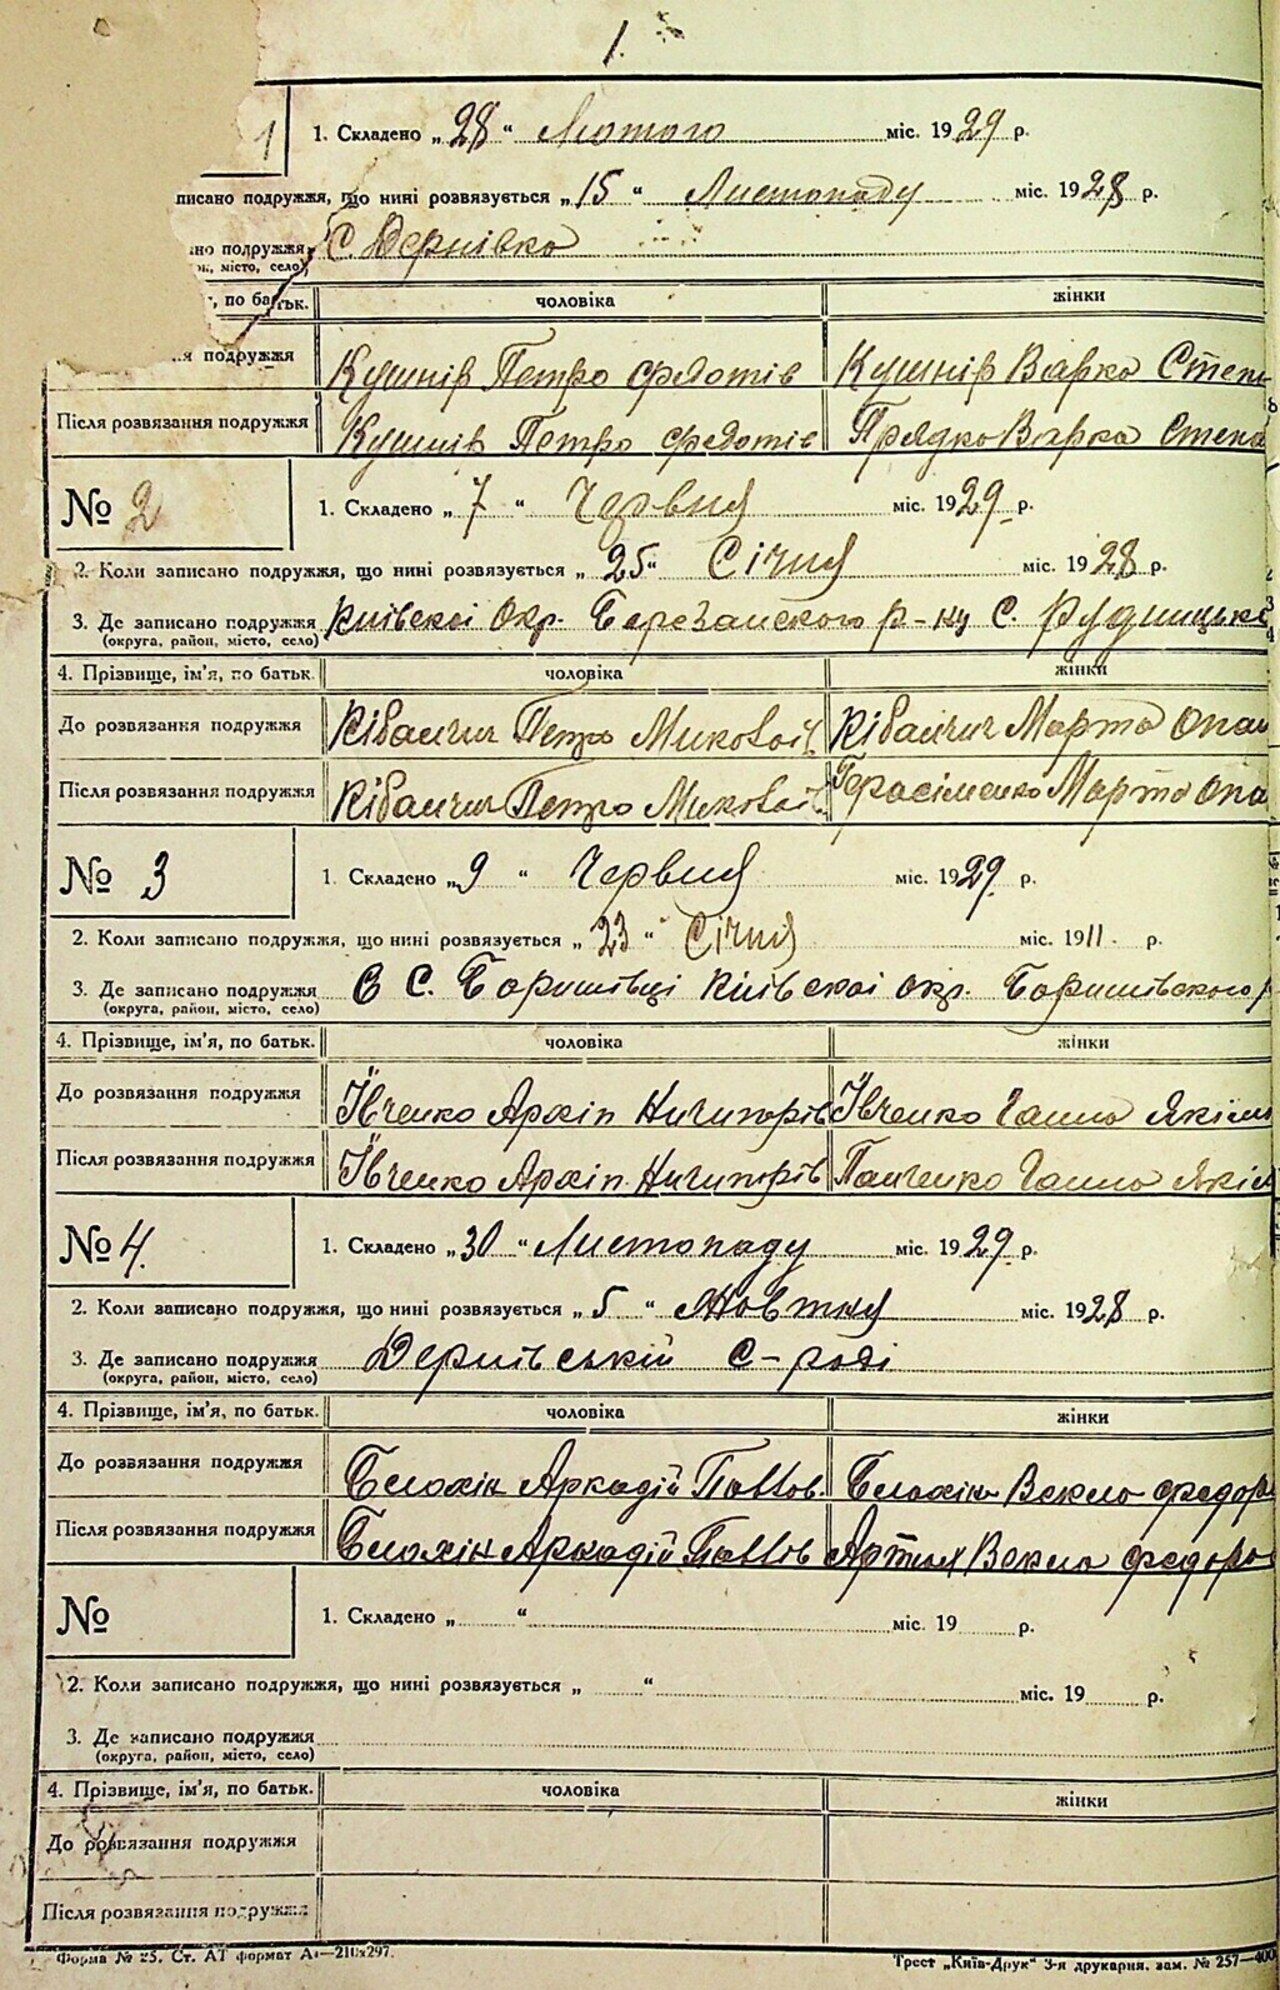 1.
1
1. Складено „28“ Лютого міс. 1929 р.
писано подружжя, що нині розвязується „15“ Листопаду міс. 1928 р.
но подружжя С. Дернівка
місто, село)
, по батьк. чоловіка жінки
я подружжя Кушнір Петро Федотів Кушнір Варка Степ
Після розвязання подружжя Кушнір Петро Федотів Прядко Варка Степа
№ 2 1. Складено „7“ Червня міс. 1929 р.
2. Коли записано подружжя, що нині розвязується „25“ Січня міс. 1928 р.
3. Де записано подружжя Київскоі Окр. Березанского р-ну С.
(округа, район, місто, село)
4. Прізвище, ім'я, по батьк. чоловіка жінки
До розвязання подружжя Кібальчич Петро Миколаїв Кібальчич Марта Опан
Після розвязання подружжя Кібальчич Петро Миколаїв Герасіменко Марта Опа
№ 3 1. Складено „9“ Червня міс. 1929 р.
2. Коли записано подружжя, що нині розвязується „23“ Січня міс. 1911 р.
3. Де записано подружжя В С. Боришівці Київскоі окр. Боришівского р
(округа, район, місто, село)
4. Прізвище, ім'я, по батьк. чоловіка жінки
До розвязання подружжя Ївченко Архіп Ничипорів Ївченко Ганна Якім
Після розвязання подружжя Ївченко Архіп Ничипорів Панченко Ганна Якім
№ 4. 1. Складено „30“ Листопаду міс. 1929 р.
2. Коли записано подружжя, що нині розвязується „5“ Жовтня міс. 1928 р.
3. Де записано подружжя Дернівській С-раді
(округа, район, місто, село)
4. Прізвище, ім'я, по батьк. чоловіка жінки
До розвязання подружжя Аркадій Павлов. Векла Федор
Після розвязання подружжя Аркадій Павлів Векла Федоро
№ 1. Складено „ “ міс. 19 р.
2. Коли записано подружжя, що нині розвязується „ “ міс. 19 р.
3. Де записано подружжя
(округа, район, місто, село)
4. Прізвище, ім'я, по батьк. чоловіка жінки
До розвязання подружжя
Після розвязання подружжя
Форма № 25. Ст. АТ формат А4—210х297. Трест „Київ-Друк“ 3-я друкарня. зам. № 257—400